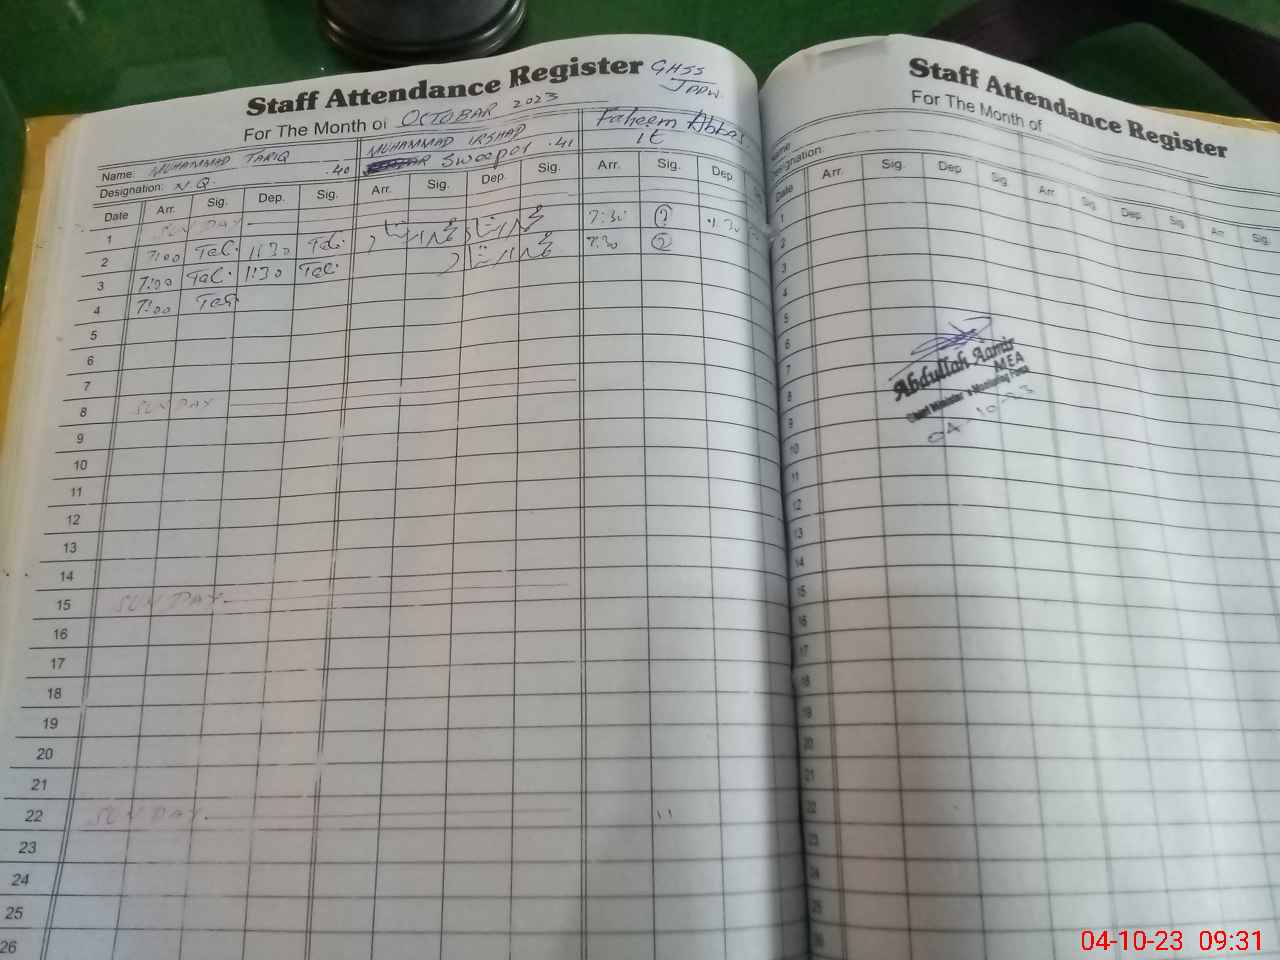 Staff Attendance Register GHSS
JPPW
For The Month of OCTOBAR 2023
Name: MUHAMMAD TARIQ .40 MUHAMMAD IRSHAD Faheem Abbas
Designation: N.Q. Sweeper .41 IT
Date Arr. Sig. Dep. Sig. Arr. Sig. Dep. Sig. Arr. Sig. Dep
1 SUNDAY
2 7:00 1:30 7:30
3 7:00 1:30 7:30
4 7:00
5
6
7
8 SUNDAY
9
10
11
12
13
14
15 SUNDAY
16
17
18
19
20
21
22 SUNDAY
23
24
25
26
Staff Attendance Register
For The Month of
Name
Designation
Date Arr. Sig. Dep Sig. Arr. Sig. Dep. Sig Arr. Sig.
1
2
3
4
5
6
7
8
9
10
11
12
13
14
15
16
17
18
19
20
21
22
23
24
25
Abdullah Aamir
MEA
Chief Minister's Monitoring Force
04-10-23
04-10-23 09:31